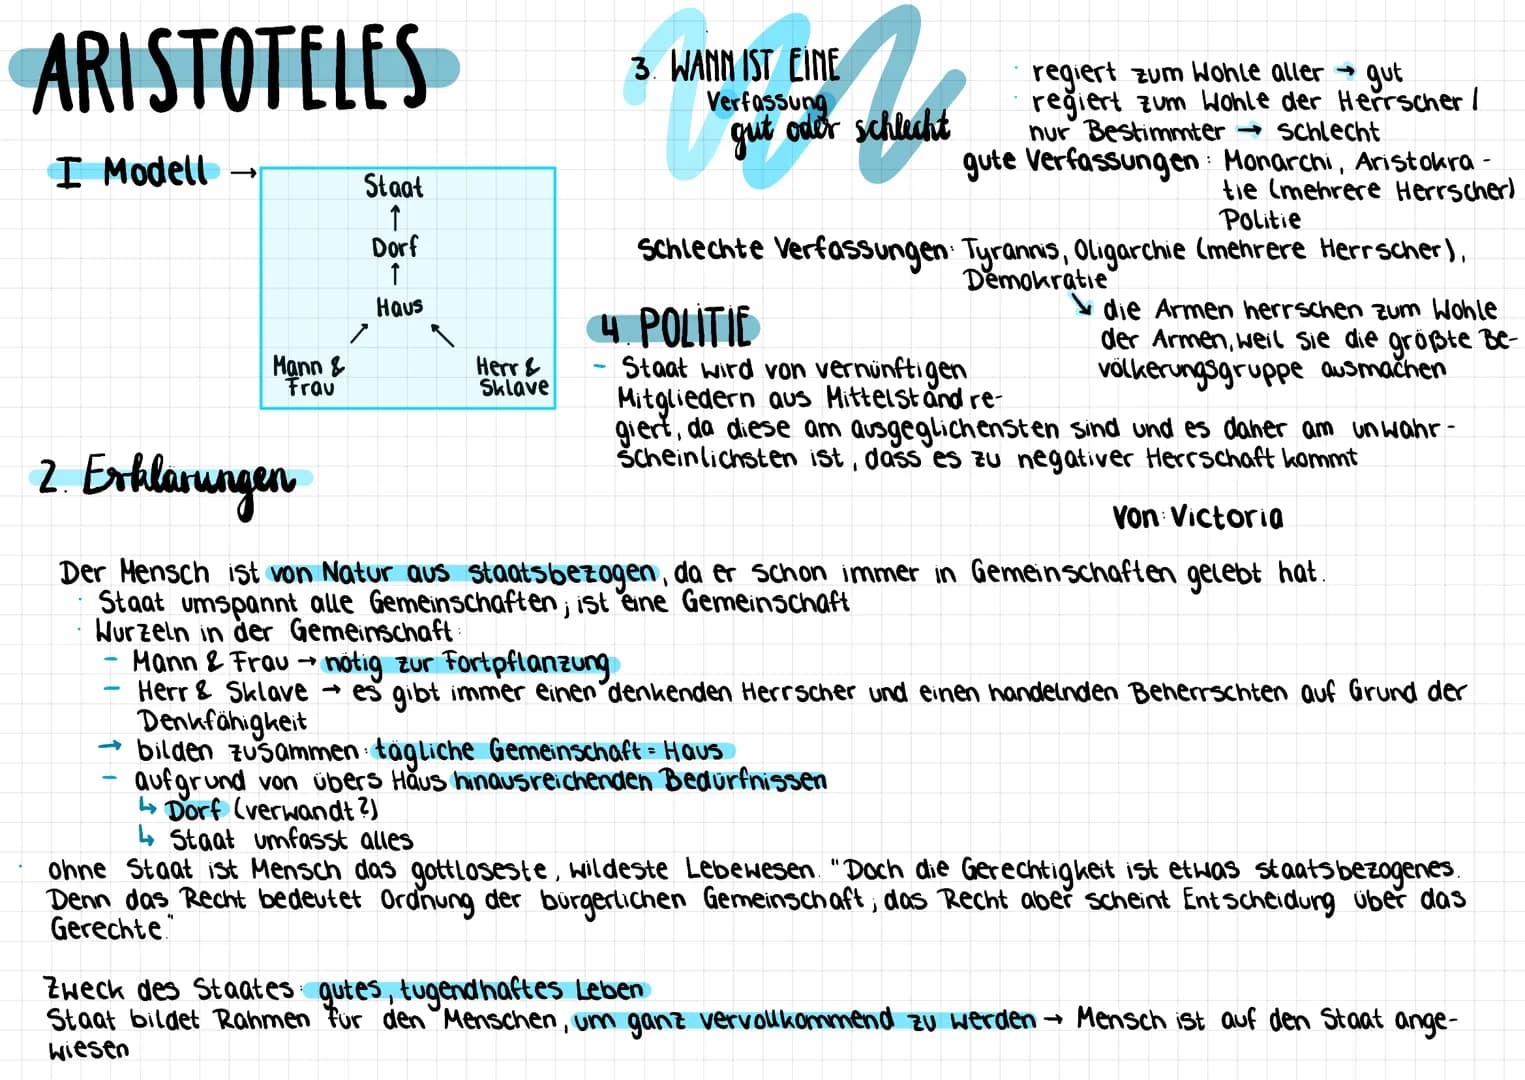 ARISTOTELES
I Modell →
Staat
↑
Dorf
↑
Haus
Mann &
Frau
Herr &
Sklave
2. Erklärungen
3. WANN IST EINE
Verfassung
gut oder schlecht
· regiert zum Wohle aller → gut
· regiert zum Wohle der Herrscher /
nur Bestimmter → schlecht
gute Verfassungen: Monarchi, Aristokra-
tie (mehrere Herrscher)
Politie
Schlechte Verfassungen: Tyrannis, Oligarchie (mehrere Herrscher),
Demokratie
↘ die Armen herrschen zum Wohle
der Armen, weil sie die größte Be-
völkerungsgruppe ausmachen
4. POLITIE
- Staat wird von vernünftigen
Mitgliedern aus Mittelstand re-
giert, da diese am ausgeglichensten sind und es daher am unwahr-
scheinlichsten ist, dass es zu negativer Herrschaft kommt
Von: Victoria
Der Mensch ist von Natur aus staatsbezogen, da er schon immer in Gemeinschaften gelebt hat.
· Staat umspannt alle Gemeinschaften; ist eine Gemeinschaft
· Wurzeln in der Gemeinschaft:
- Mann & Frau → nötig zur Fortpflanzung
- Herr & Sklave → es gibt immer einen denkenden Herrscher und einen handelnden Beherrschten auf Grund der
Denkfähigkeit
→ bilden zusammen: tägliche Gemeinschaft = Haus
- aufgrund von übers Haus hinausreichenden Bedürfnissen
↳ Dorf (verwandt?)
↳ Staat umfasst alles
· ohne Staat ist Mensch das gottloseste, wildeste Lebewesen. "Doch die Gerechtigkeit ist etwas staatsbezogenes.
Denn das Recht bedeutet Ordnung der bürgerlichen Gemeinschaft; das Recht aber scheint Entscheidung über das
Gerechte."
Zweck des Staates: gutes, tugendhaftes Leben
Staat bildet Rahmen für den Menschen, um ganz vervollkommend zu werden → Mensch ist auf den Staat ange-
wiesen